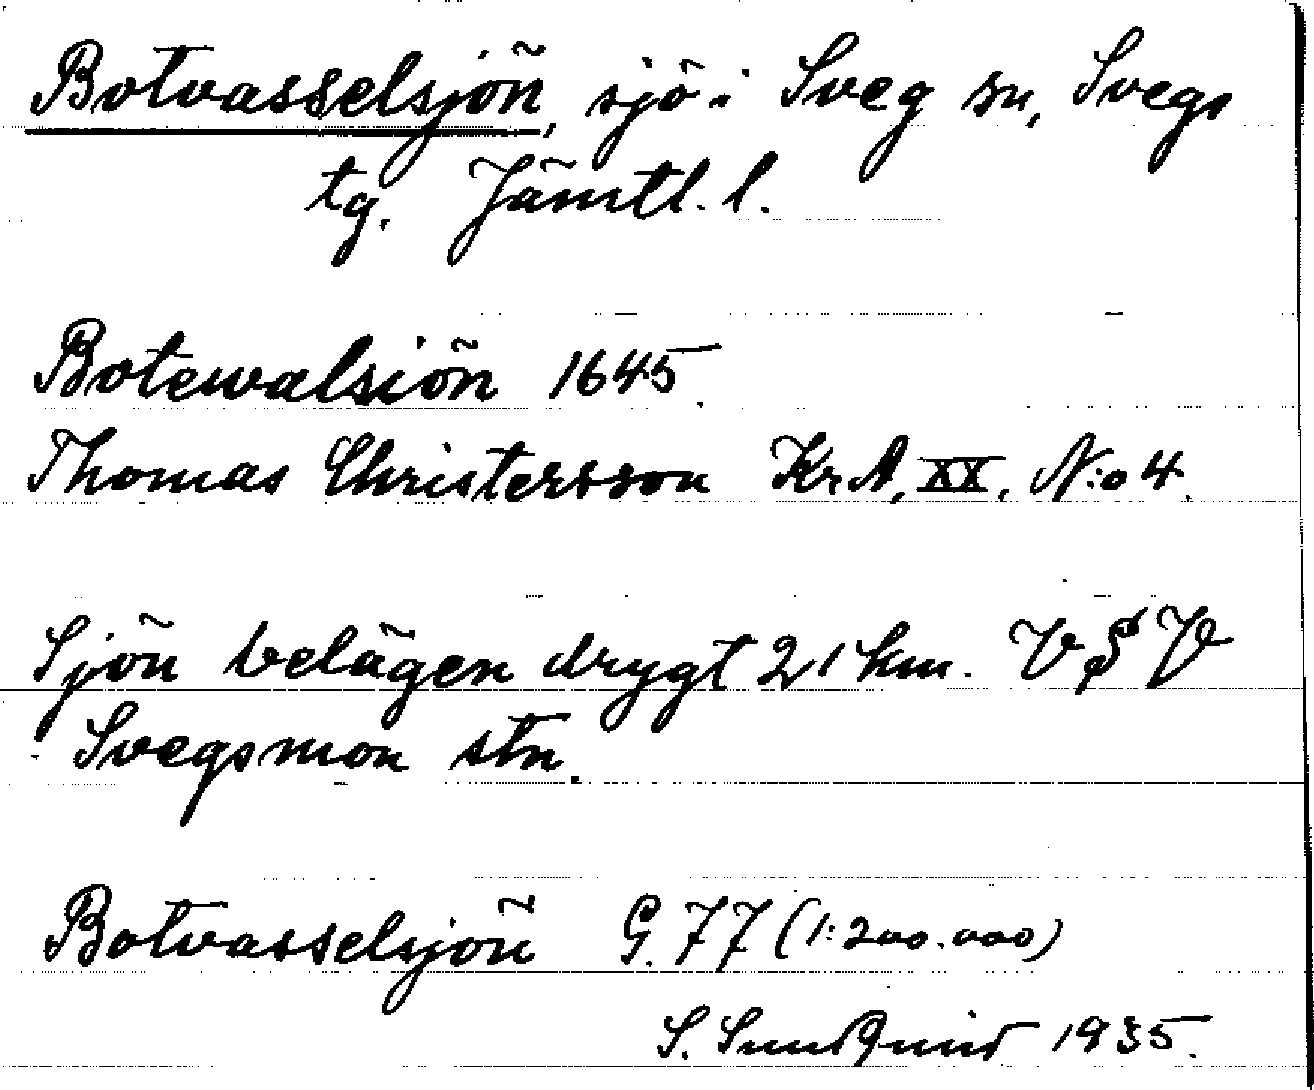 Botvasselsjön, sjö i Sveg sn, Svegs
tg. Jämtl. l.
Botewalsiön 1645.
Thomas Christersson Kr. A, XX, N:o 4.
Sjön belägen drygt 21 km. V S V
Svegsmon stn.
Botvasselsjön G. 77 (1:200.000)
S. Sundquist 1935.